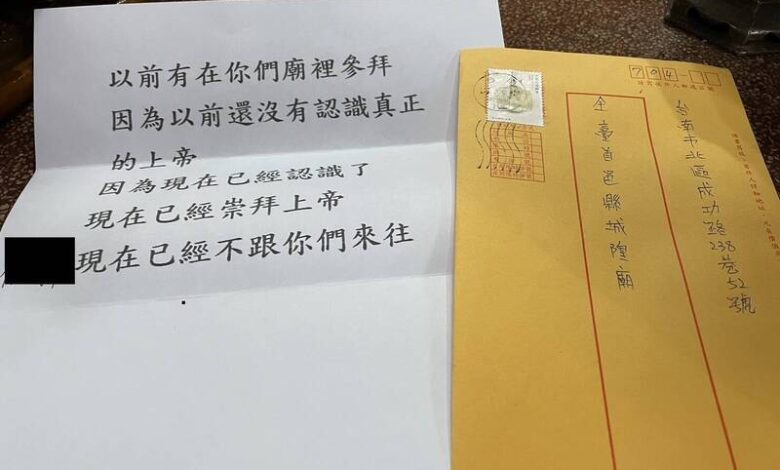 以前有在你們廟裡參拜
因為以前還沒有認識真正
的上帝
因為現在已經認識了
現在已經崇拜上帝
現在已經不跟你們來往
704-
台南市北區成功路238巷52號
全臺首邑縣城隍廟